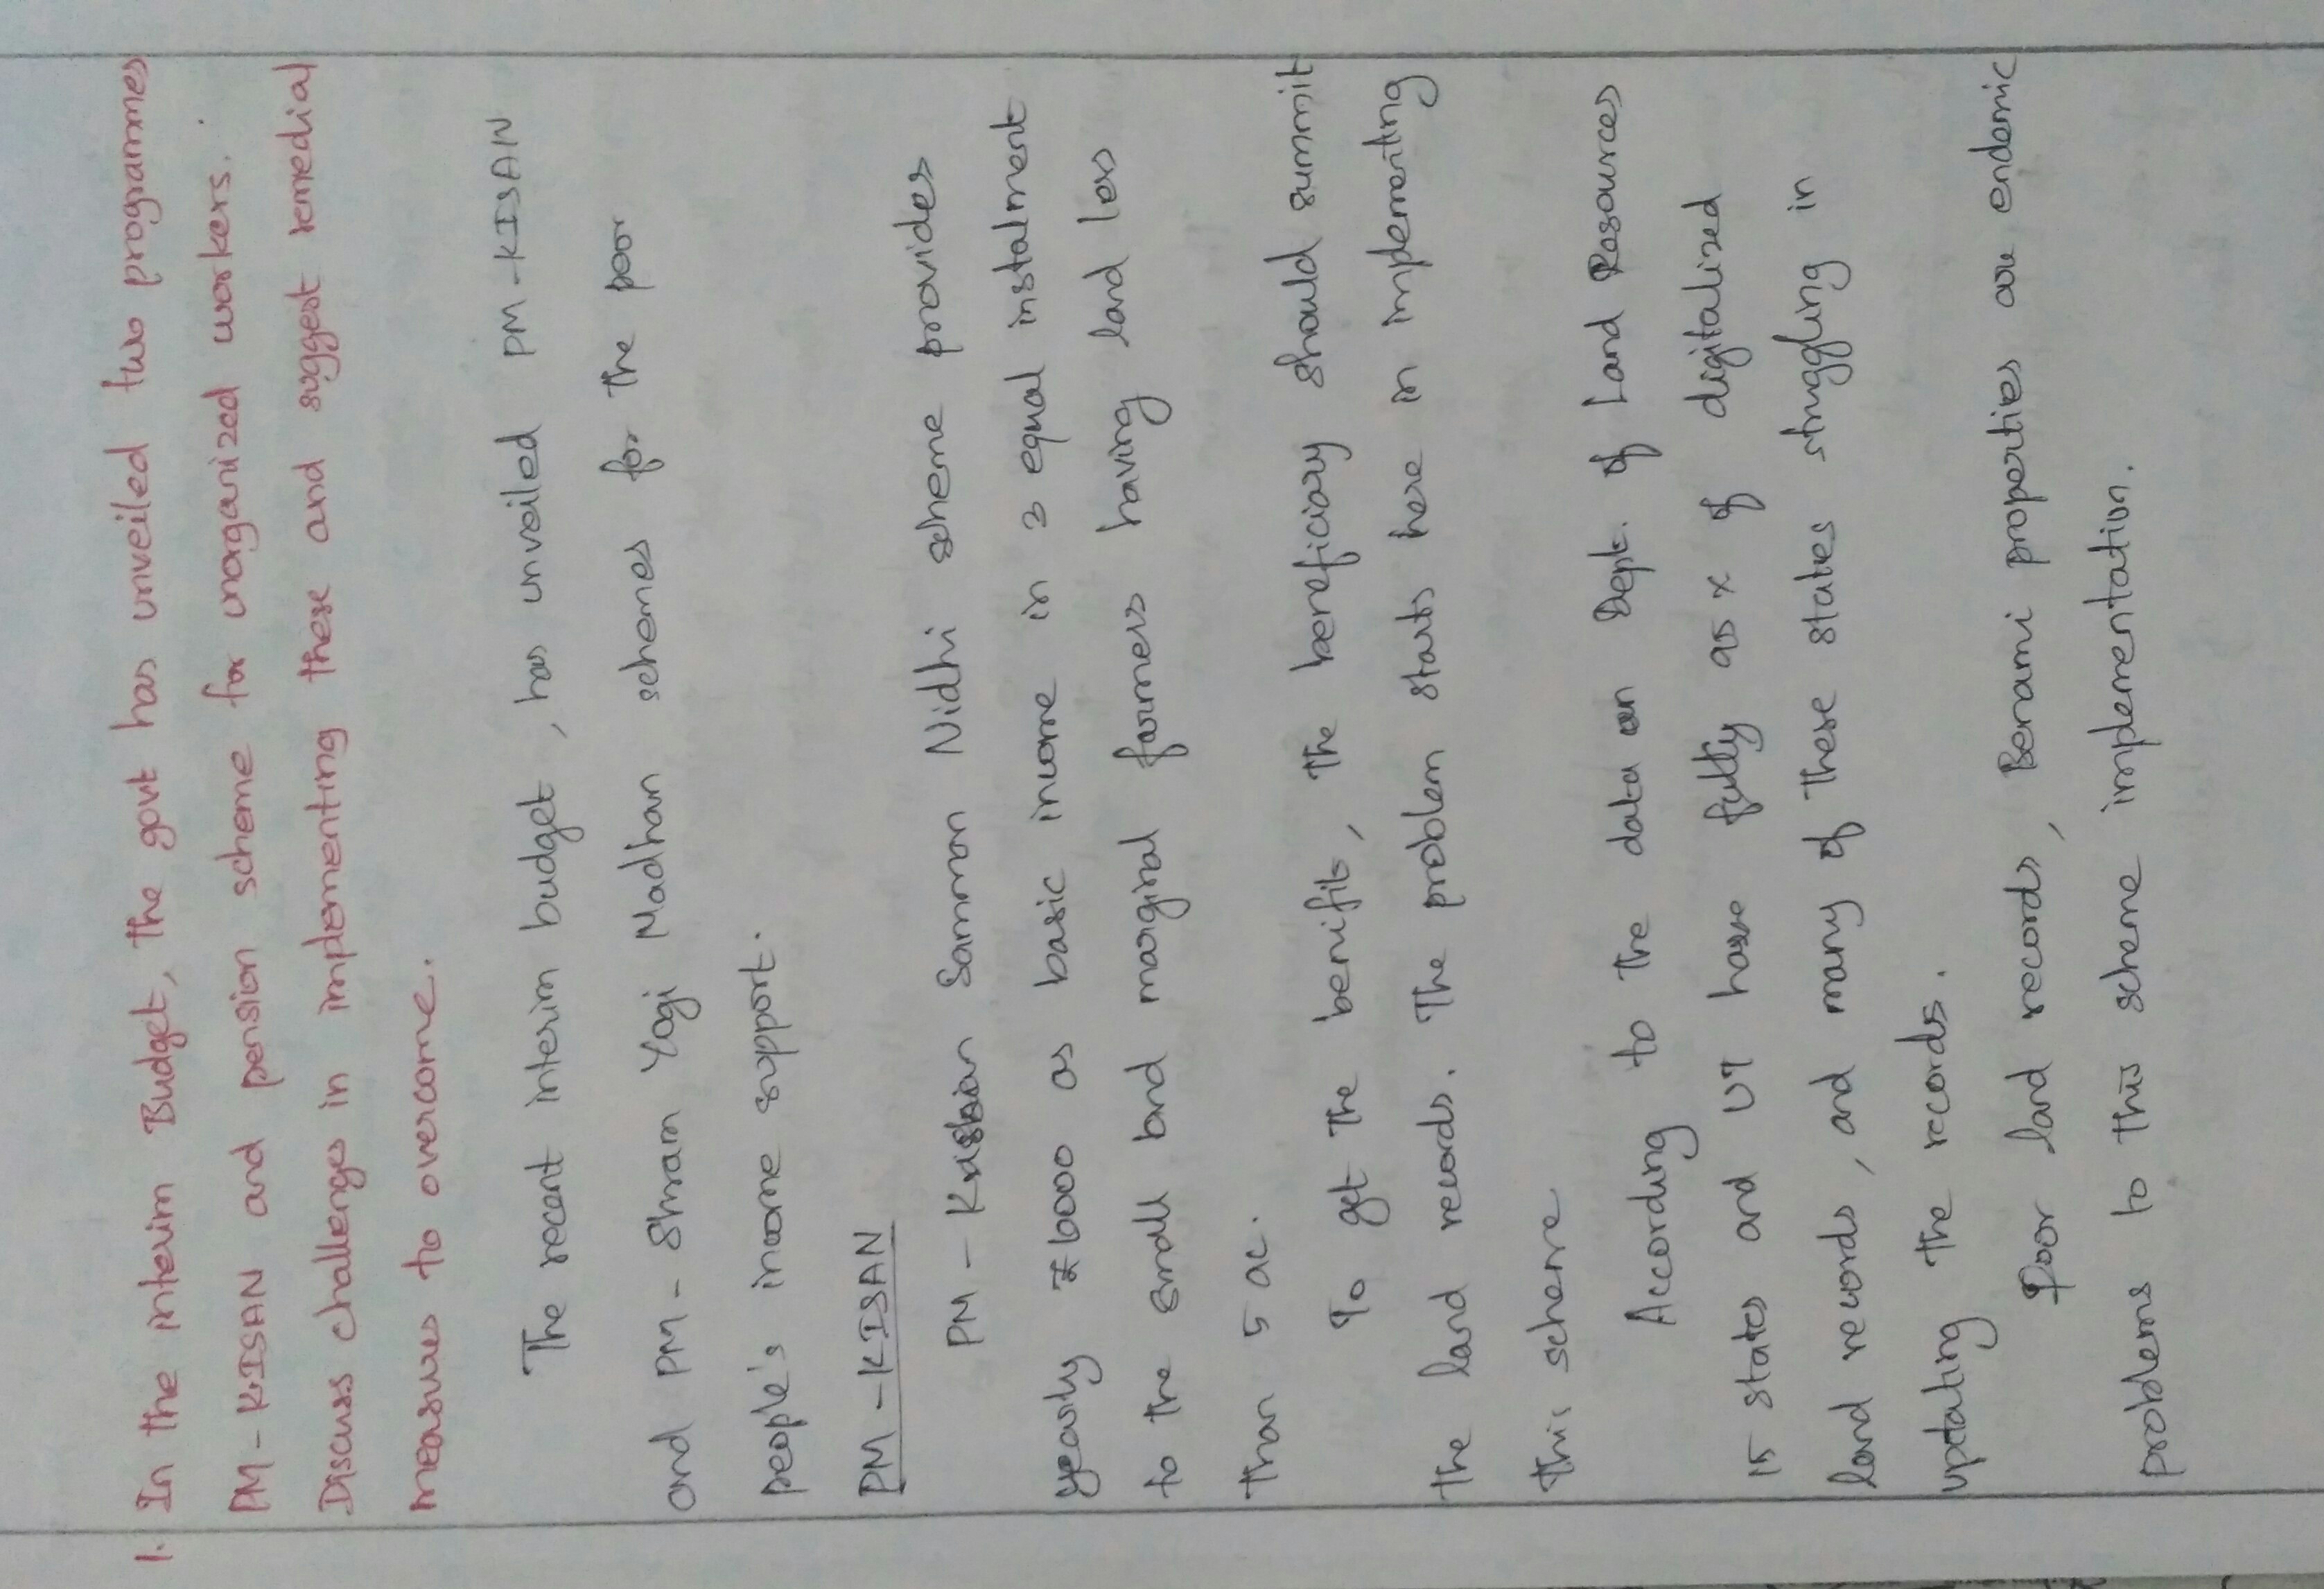 1. In the interim Budget, the govt has unveiled two programmes
PM-KISAN and pension scheme for unorganized workers.
Discuss challenges in implementing these and suggest remedial
measures to overcome.
The recent interim budget, has unveiled PM-KISAN
and PM- Shram Yogi Madhan schemes for the poor
people's income support.
PM-KISAN
PM- Samman Nidhi scheme provides
yearly ₹6000 as basic income in 3 equal instalment
to the small and marginal farmers having land less
than 5 ac.
To get the benifits, the beneficiary should summit
the land records. The problem starts here in implementing
this scheme
According to the data on Dept. of Land Resources
15 states and UT have fully 95% of digitalized
land records, and many of these states struggling in
uptating the records.
Poor land records, Benami properties are endemic
problems to this scheme implementation.